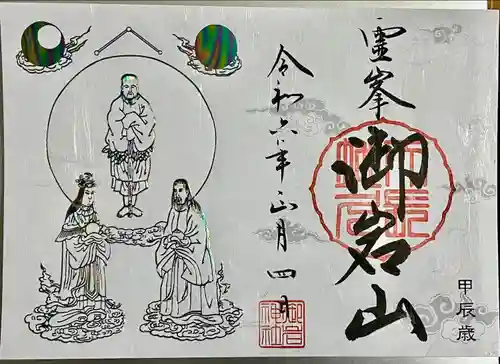 霊峯
御岩山
甲辰歳
令和六年正月四日
御岩神社